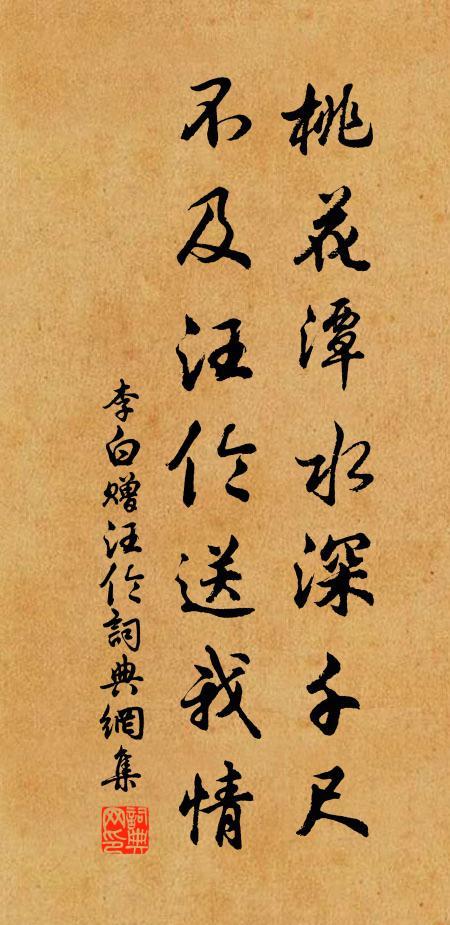 桃花潭水深千尺
不及汪伦送我情
李白赠汪伦詞典網集
詞典网印